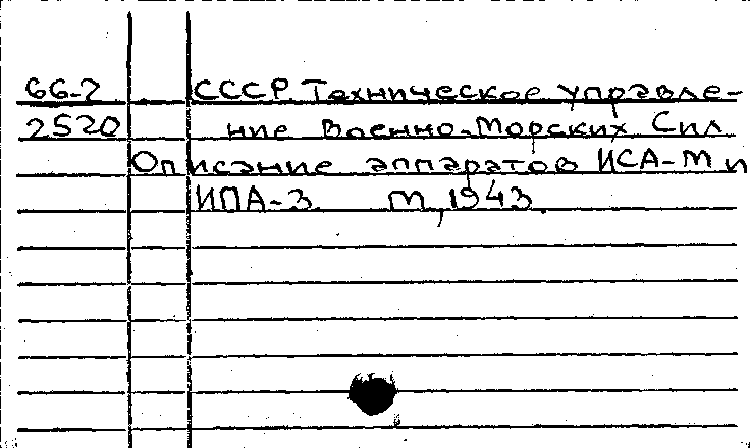 66-2 СССР. Техническое управле-
2520 ние Военно-Морских Сил.
Описание аппаратов ИСА-М и
ИПА-3. М, 1943.